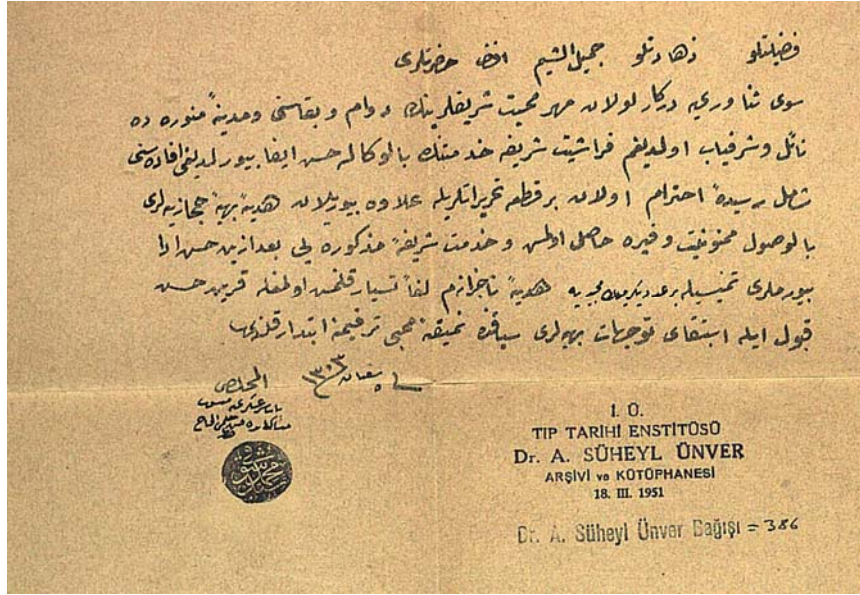 فضيلتلو زهادتلو جميل الشيم افندم حضرتلری
سوی ثناوری درکار اولان مهر محبت شريفلرينك دوام و بقاسنی ومدينۀ منوره ده
نائل وشرفياب اولديغم فراشيت شريفه خدمتنك بالوكاله حسن ايفا بيورلديغی افاده سنی
شامل رسيدۀ احترام اولان برقطعه تحريراتلريله علاوه بيوريلان هديۀ بهيۀ حجازيه لری
بالوصول ممنونيت وفيره حاصل اولمش و خدمت شريفۀ مذكوره يی بعدازين حسن ادا
بيورملری تمنيسيله برعدد هديۀ ناچيزانه م لفاً تسيار قلنمش اولمغله قرين حسن
قبول ايله استبقای توجهات بهيه لری سياقنده نميقۀ محبی ترقيمنه ابتدار قلندی
۱۳۰۳
المخلص
محمد شوقی
I. Ü.
TIP TARİHİ ENSTİTÜSÜ
Dr. A. SÜHEYL ÜNVER
ARŞİVİ ve KÜTÜPHANESİ
18. III. 1951
Dr. A. Süheyl Ünver Bağışı = 386